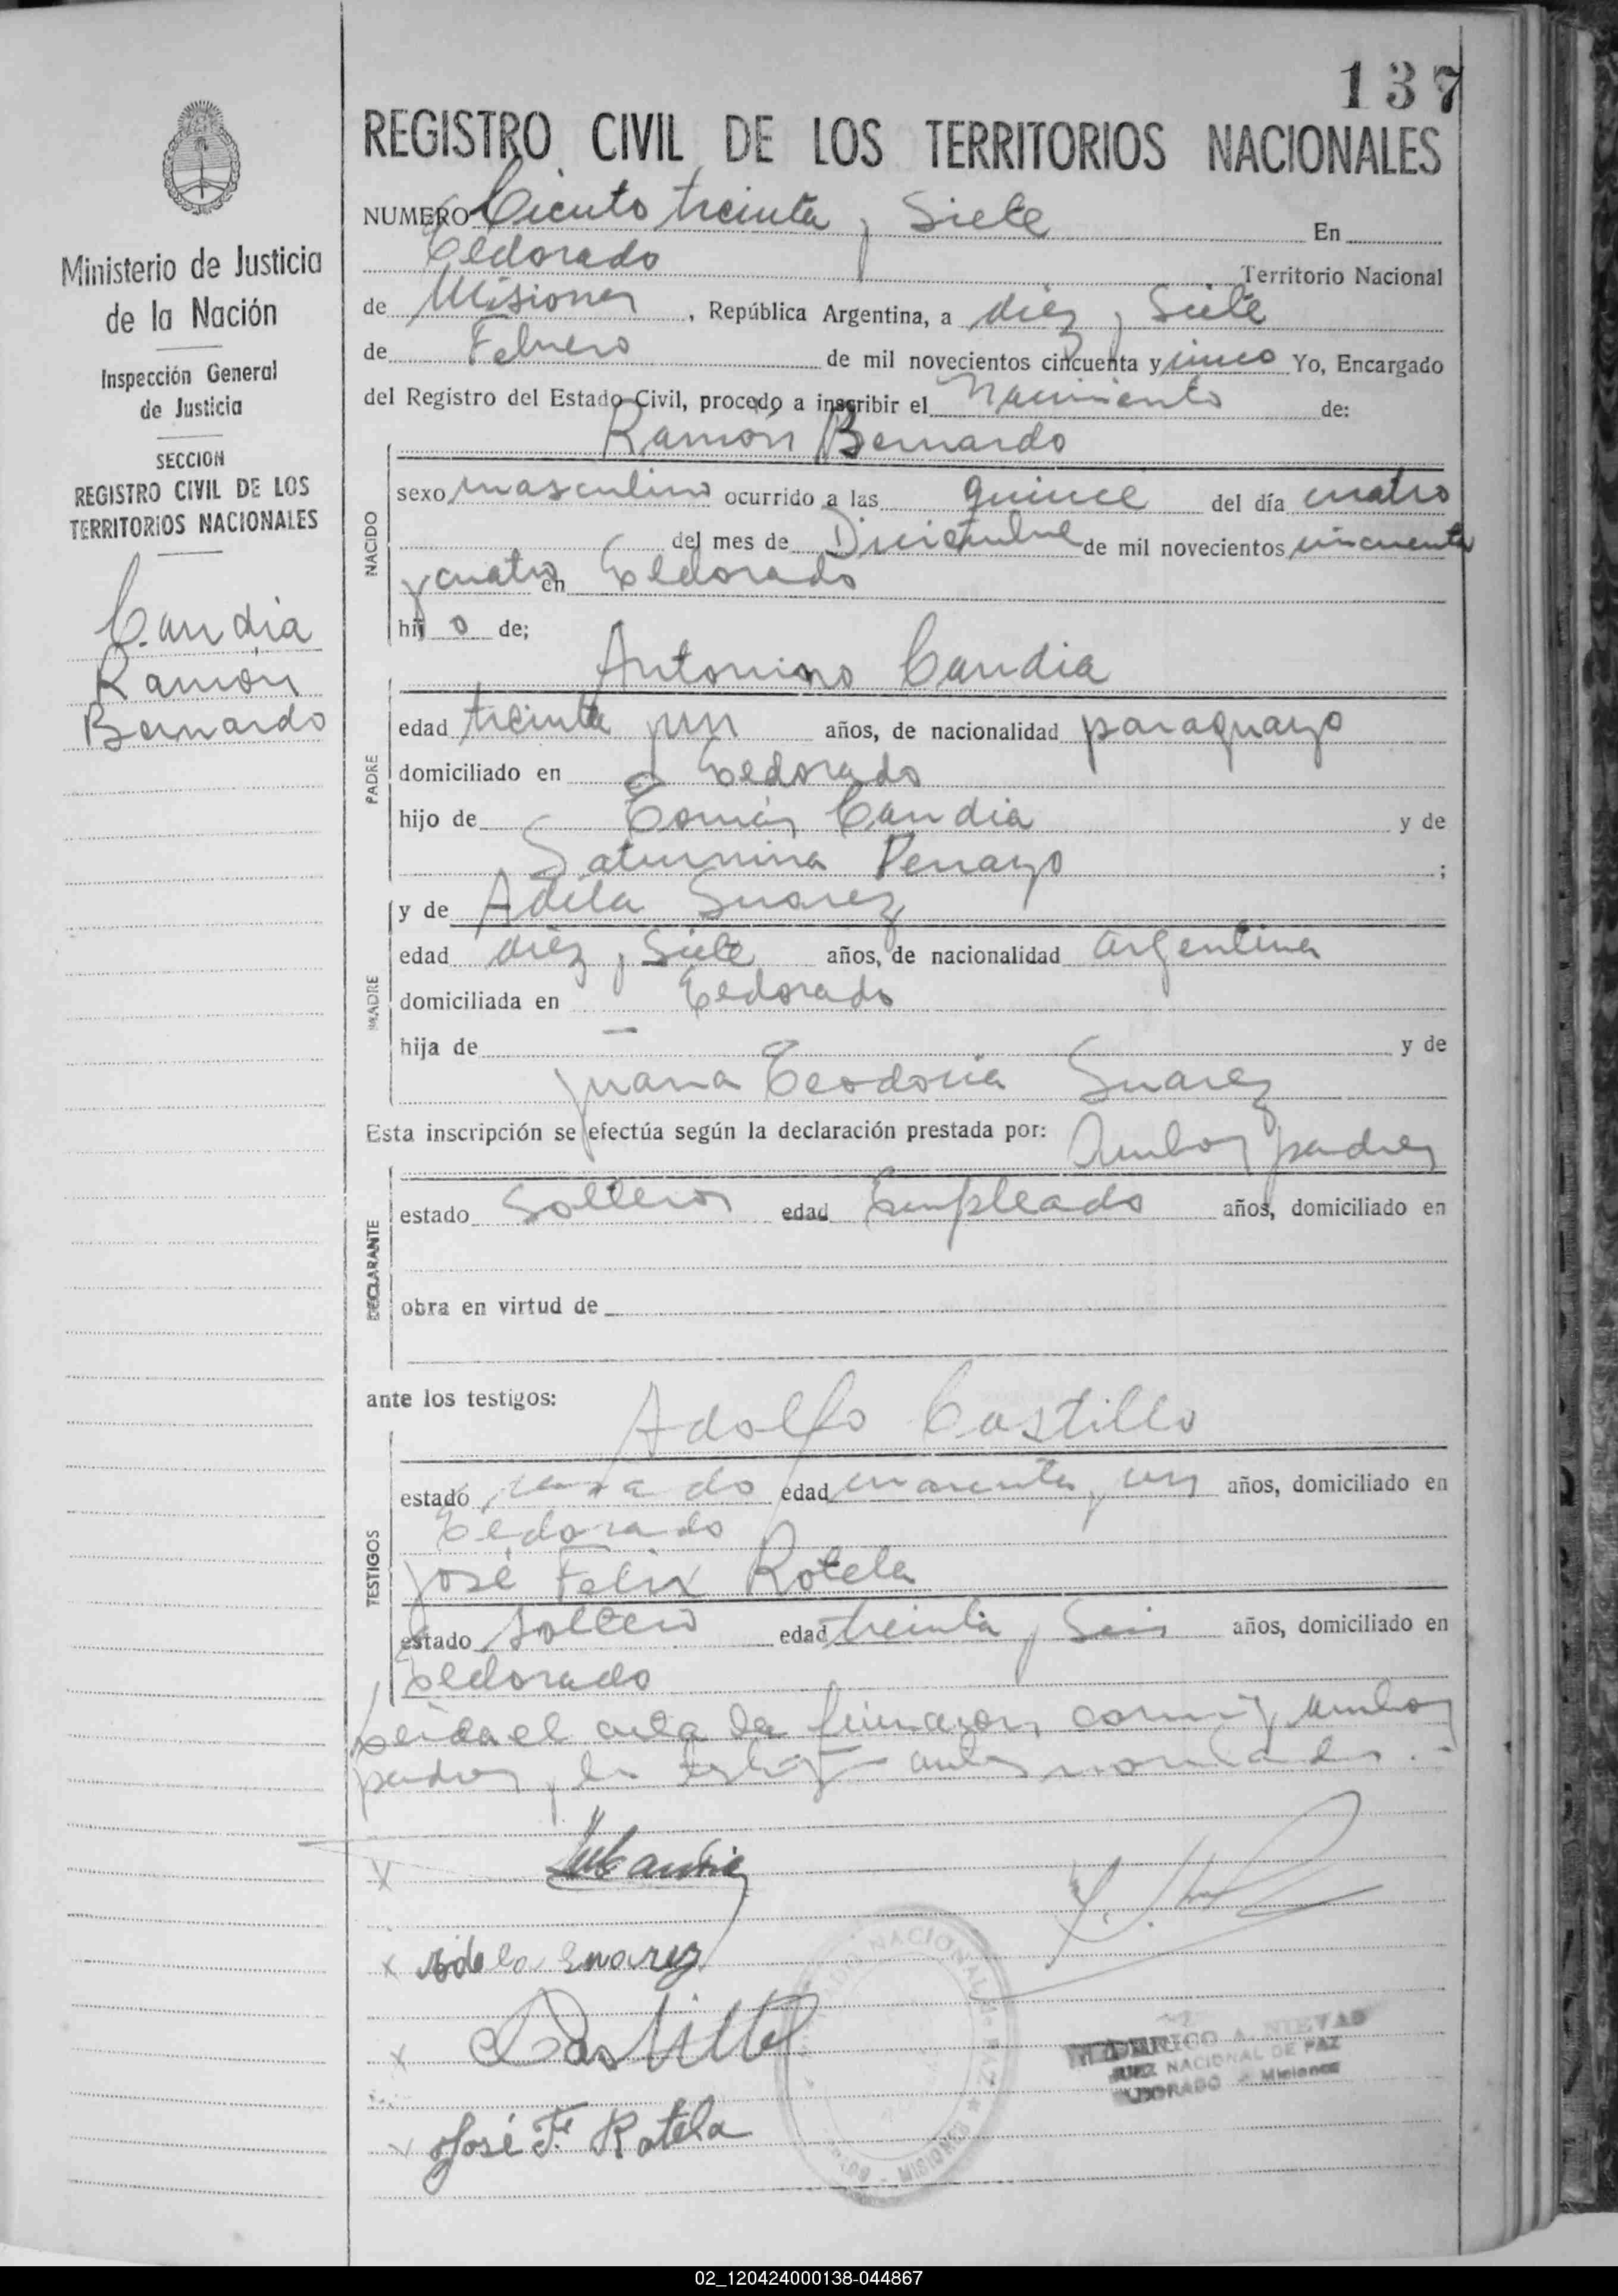 137
REGISTRO CIVIL DE LOS TERRITORIOS NACIONALES
Ministerio de Justicia
de la Nación
Inspección General
de Justicia
SECCION
REGISTRO CIVIL DE LOS
TERRITORIOS NACIONALES
Candia
Ramón
Bernardo
NUMERO Ciento treinta y Siete En
Eldorado Territorio Nacional
de Misiones, República Argentina, a diez y Siete
de Febrero de mil novecientos cincuenta y cinco Yo, Encargado
del Registro del Estado Civil, procedo a inscribir el Nacimiento de:
NACIDO
Ramón Bernardo
sexo masculino ocurrido a las quince del día cuatro
del mes de Diciembre de mil novecientos cincuenta
y cuatro en Eldorado
hij o de;
PADRE
Antonino Candia
edad treinta y un años, de nacionalidad paraguayo
domiciliado en Eldorado
hijo de Tomás Candia y de
Saturnina Penayo ;
MADRE
y de Adela Suarez
edad diez y Siete años, de nacionalidad argentina
domiciliada en Eldorado
hija de — y de
Juana Teodoria Suarez
Esta inscripción se efectúa según la declaración prestada por: Ambos padres
DECLARANTE
estado Solteros edad Empleado años, domiciliado en
obra en virtud de
ante los testigos:
TESTIGOS
Adolfo Castillo
estado casado edad cuarenta y un años, domiciliado en
Eldorado
José Felix Rotela
estado soltero edad treinta y Seis años, domiciliado en
Eldorado
Leida el acta la firmaron conmigo ambos
padres y los testigos antes nombrados.-
X
X Adela Suarez
X Castillo
X José F. Rotela
NACIONAL PAZ
MISIONES
FEDERICO A. NIEVAS
JUEZ NACIONAL DE PAZ
ELDORADO - Misiones
02_120424000138-044867